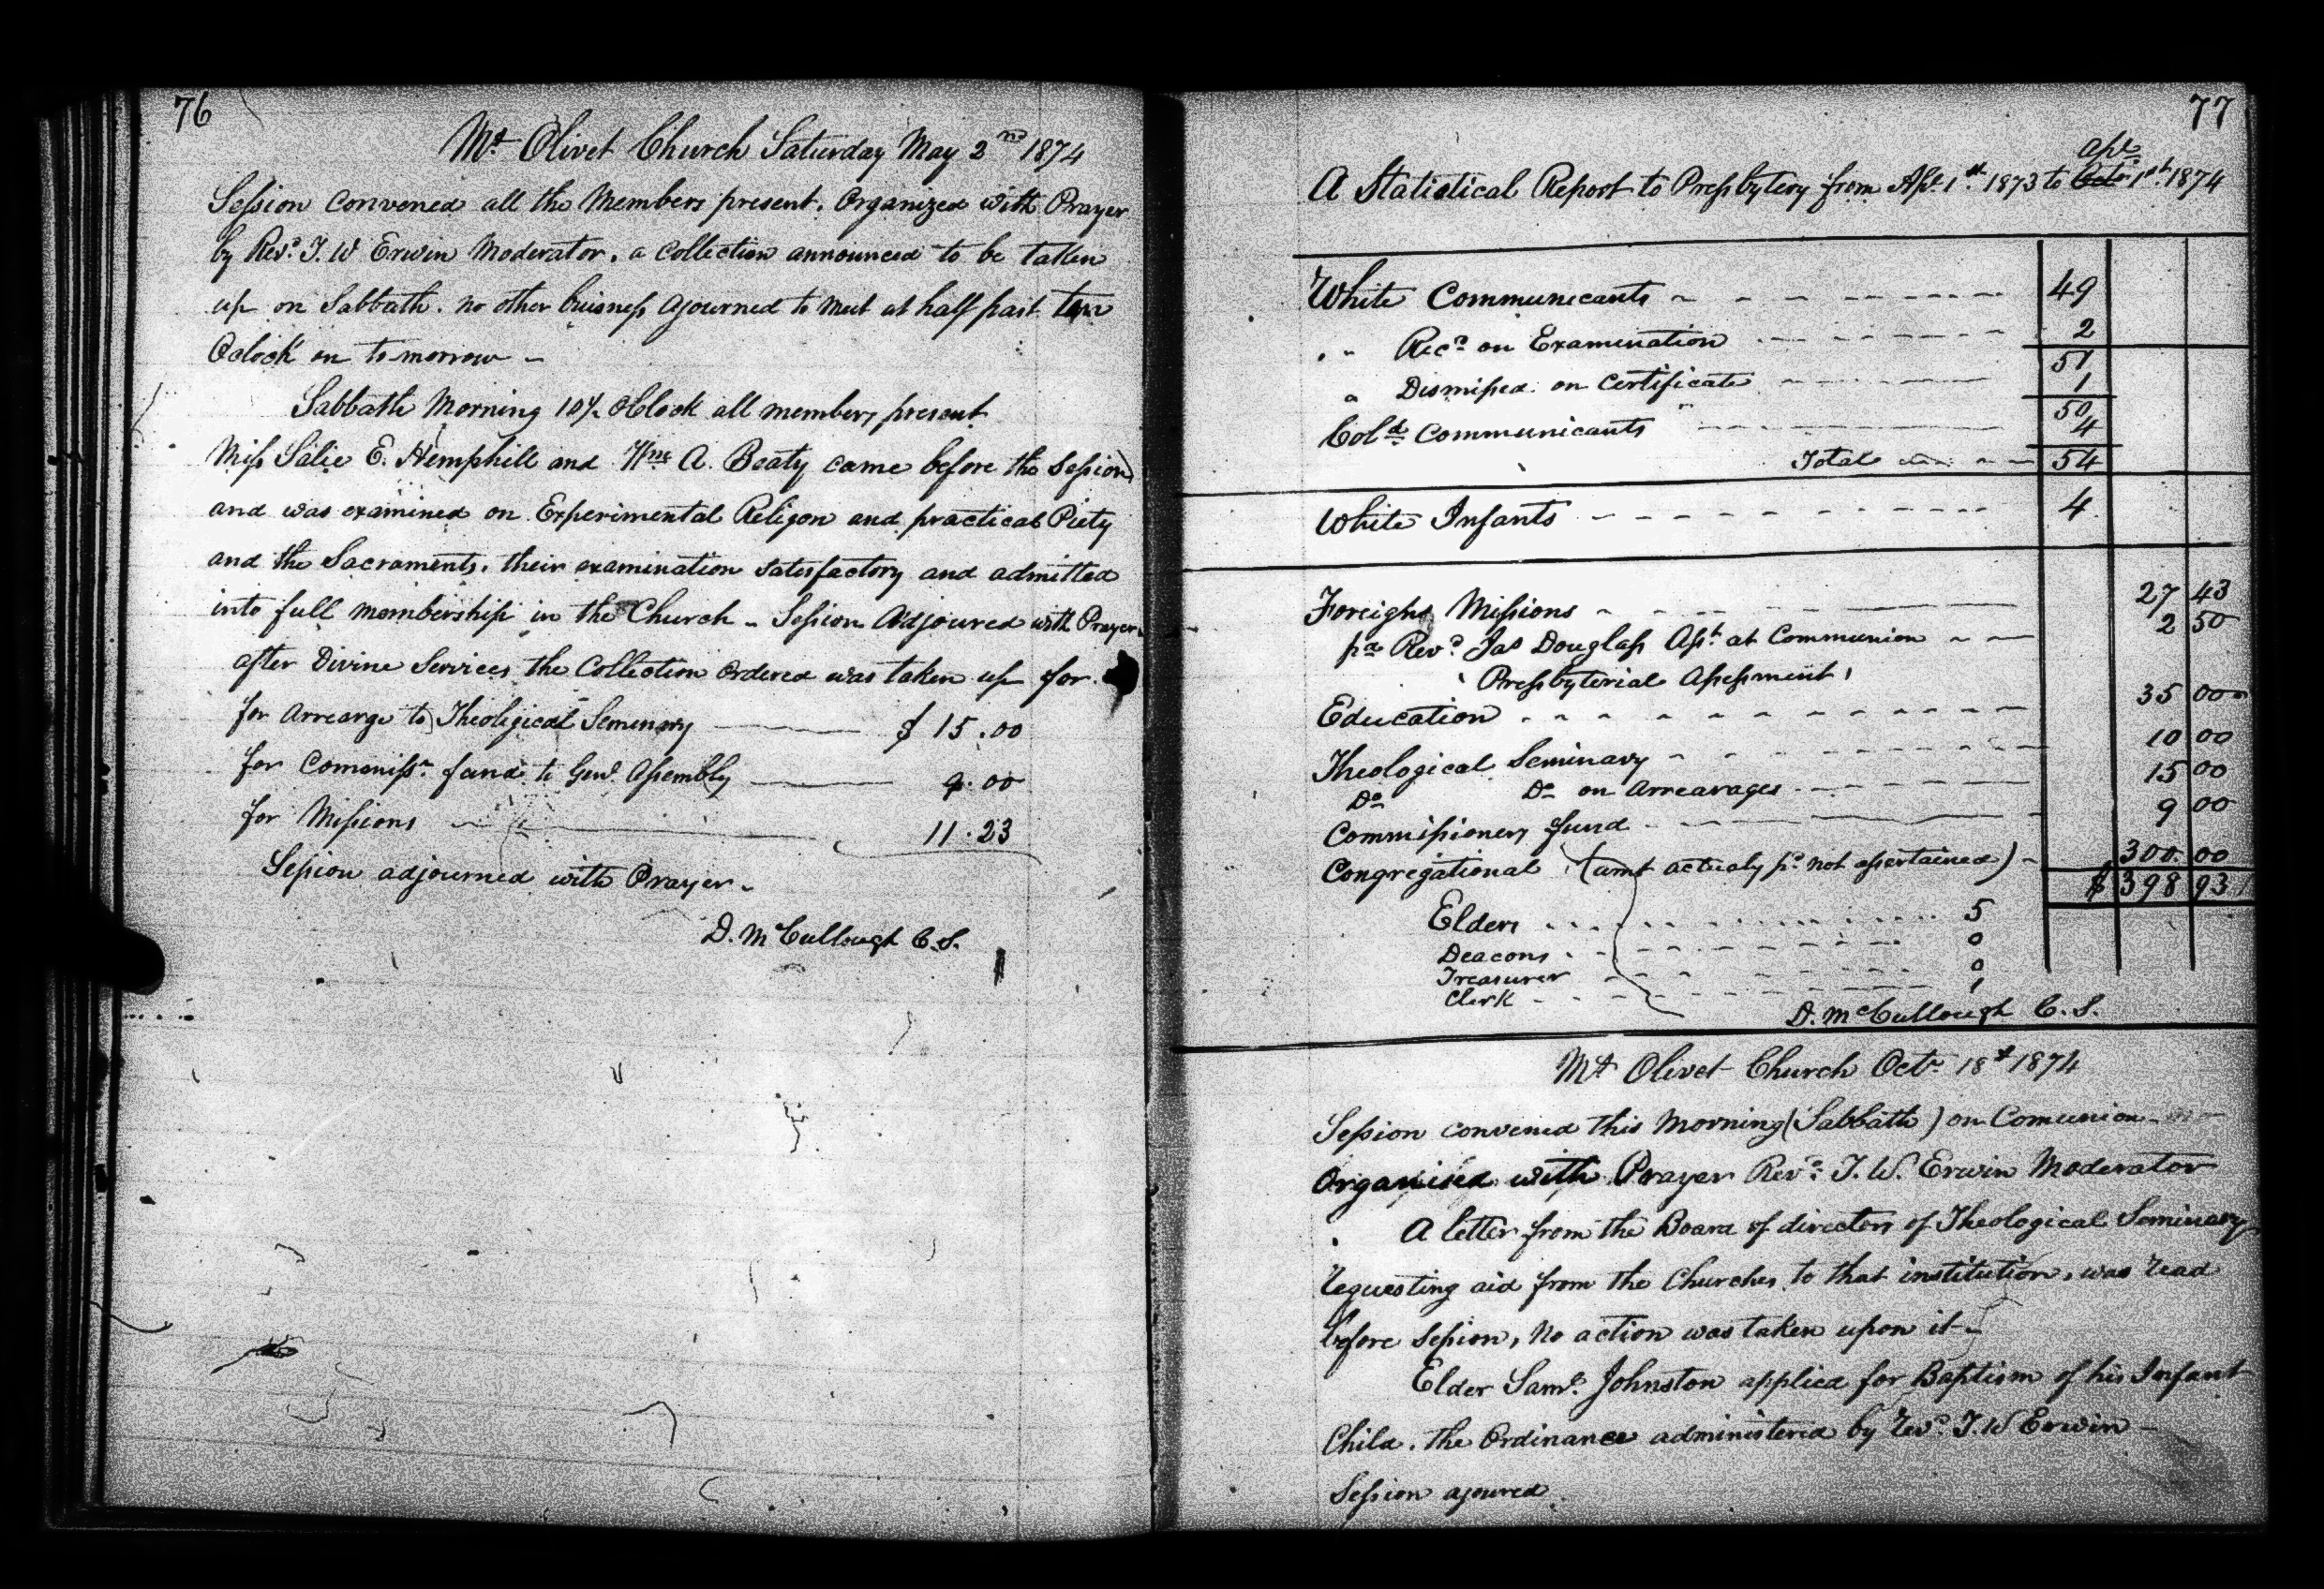 76
Mt Olivet Church Saturday May 2nd 1874
Session convened all the Members present. Organized with Prayer
by Revd. T. W Erwin Moderator. a collection announced to be taken
up on Sabbath. no other buisness ajourned to meet at half past ten
Oclock on to morrow -
Sabbath Morning 10½ Oclock all members present.
Miss Salie E. Hemphill and Wm A. Beaty came before the Session
and was examined on Experimental Religon and practical Piety
and the Sacraments. their examination satesfactory and admitted
into full membership in the Church - Session Adjoured with Prayer.
after Divine Services, the Collection Ordered was taken up for.
for Arrearge to Theoligical Semenary $ 15.00
for Comoniss.r fund to Genl. Assembly 9.00
for Missions 11.23
Session adjourned with Prayer.
D. McCullough C. S.
77
apl
A Statistical Report to Presbytery from Apl. 1st. 1873 to Oct. 1st. 1874
White Communicants 49
" " Recd on Examination 2
51
" Dismissed on Certificate 1
50
Cold Communicants 4
Total 54
White Infants 4
Foreighn Missions 27 43
pd Revd. Jas Douglass Asst. at Communion 2 50
Presbyterial Assessment
Education 35 00
Theological Seminary 10 00
Do Do on Arrearages 15 00
Commissioners fund 9 00
Congregational (amt actualy pd not assertained) 300.00
$ 398 93
Elders 5
Deacons 0
Treasurer 0
Clerk 1
D. McCullough C. S.
Mt Olivet Church Octr 18t 1874
Session convened this Morning (Sabbath) on Comunion
Organised with Prayer Revd. T. W. Erwin Moderator
A letter from the Board of directors of Theological Seminary
requesting aid from the Churches to that institution, was read
before Session, no action was taken upon it -
Elder Saml. Johnston applied for Baptism of his Infant
Child. the Ordinance administered by Revd. T. W Erwin
Session ajoured